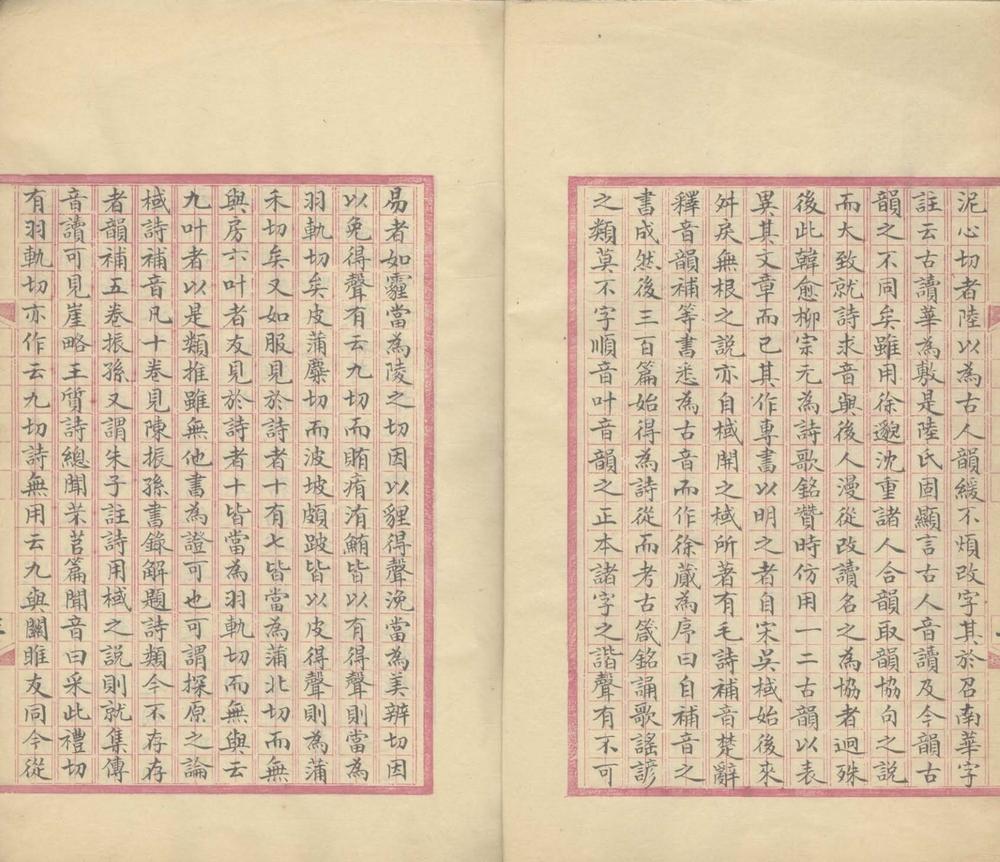 泥心切者陸以為古人韻緩不煩改字其於召南華字
註云古讀華為敷是陸氏固顯言古人音讀及今韻古
韻之不同矣雖用徐邈沈重諸人合韻取韻協句之說
而大致就詩求音與後人漫從改讀名之為協者迥殊
後此韓愈柳宗元為詩歌銘贊時仿用一二古韻以表
異其文章而已其作專書以明之者自宋吳棫始後來
舛戾無根之說亦自棫開之棫所著有毛詩補音楚辭
釋音韻補等書悉為古音而作徐蕆為序曰自補音之
書成然後三百篇始得為詩從而考古箴銘誦歌謠諺
之類莫不字順音叶音韻之正本諸字之諧聲有不可
易者如霾當為陵之切因以貍得聲浼當為美辨切因
以免得聲有云九切而賄痏洧鮪皆以有得聲則當為
羽軌切矣皮蒲糜切而波坡頗跛皆以皮得聲則為蒲
禾切矣又如服見於詩者十有七皆當為蒲北切而無
與房六叶者友見於詩者十皆當為羽軌切而無與云
九叶者以是類推雖無他書為證可也可謂探原之論
棫詩補音凡十卷見陳振孫書錄解題詩類今不存存
者韻補五卷振孫又謂朱子註詩用棫之說則就集傳
音讀可見崖略王質詩總聞芣苢篇聞音曰采此禮切
有羽軌切亦作云九切詩無用云九與關雎友同今從